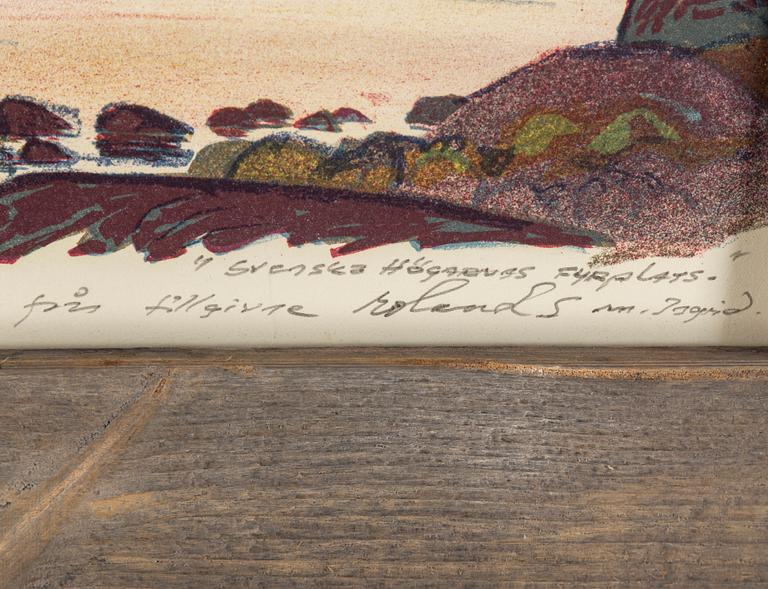 "Svenska Högarnas Fyrplats."
från tillgivne Roland S m. Ingrid.